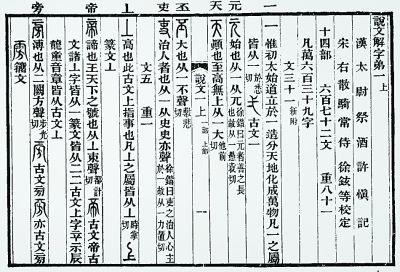 說文解字第一 上
漢太尉祭酒許慎記
宋右散騎常侍徐鉉等校定
十四部 六百七十二文 重八十一
凡萬六百三十九字
文三十一 新附
一 一 惟初太始道立於一造分天地化成萬物凡一之屬
皆从一 於悉切 弌 古文一
元 元 始也从一从兀 徐鍇曰元者善之長也故从一 愚袁切
天 天 顛也至高無上从一大 他前切
說文一上 一部 上部 一
丕 丕 大也从一不聲 敷悲切
吏 吏 治人者也从一从史史亦聲 徐鍇曰吏之治人心主於一故从一 力置切
文五 重一
丄 丄 高也此古文上指事也凡丄之屬皆从丄 時掌切
篆文丄
帝 帝 諦也王天下之號也从丄朿聲 都計切 古文帝古
文諸丄字皆从一篆文皆从二二古文上字䇂示辰
龍童音章皆从古文丄
旁 旁 溥也从二闕方聲 步光切 古文旁 亦古文旁
籀文